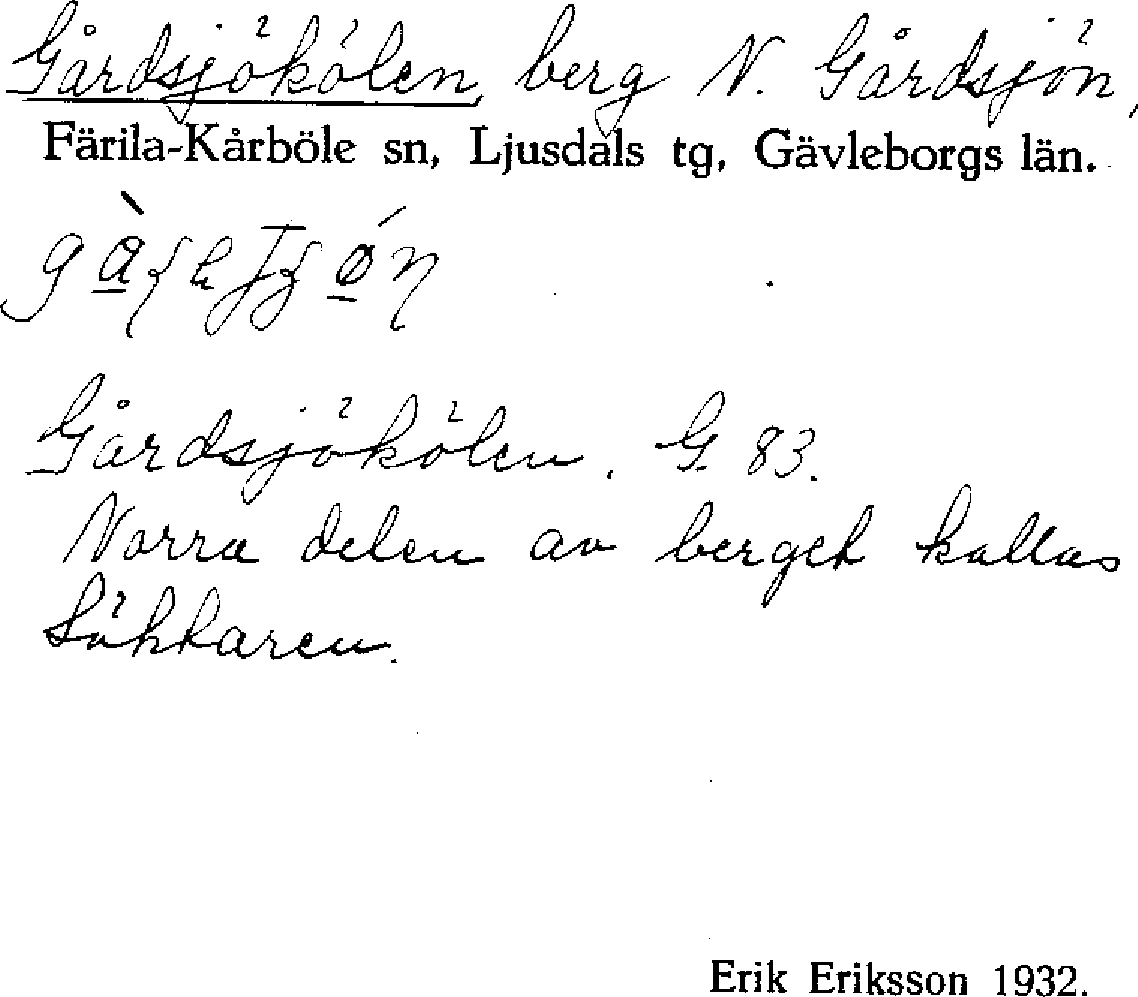 Gårdsjökölen, berg N. Gårdsjön,
Färila-Kårböle sn, Ljusdals tg, Gävleborgs län.
Gårdsjökölen. G 83.
Norra delen av berget kallas
Sökkaren.
Erik Eriksson 1932.